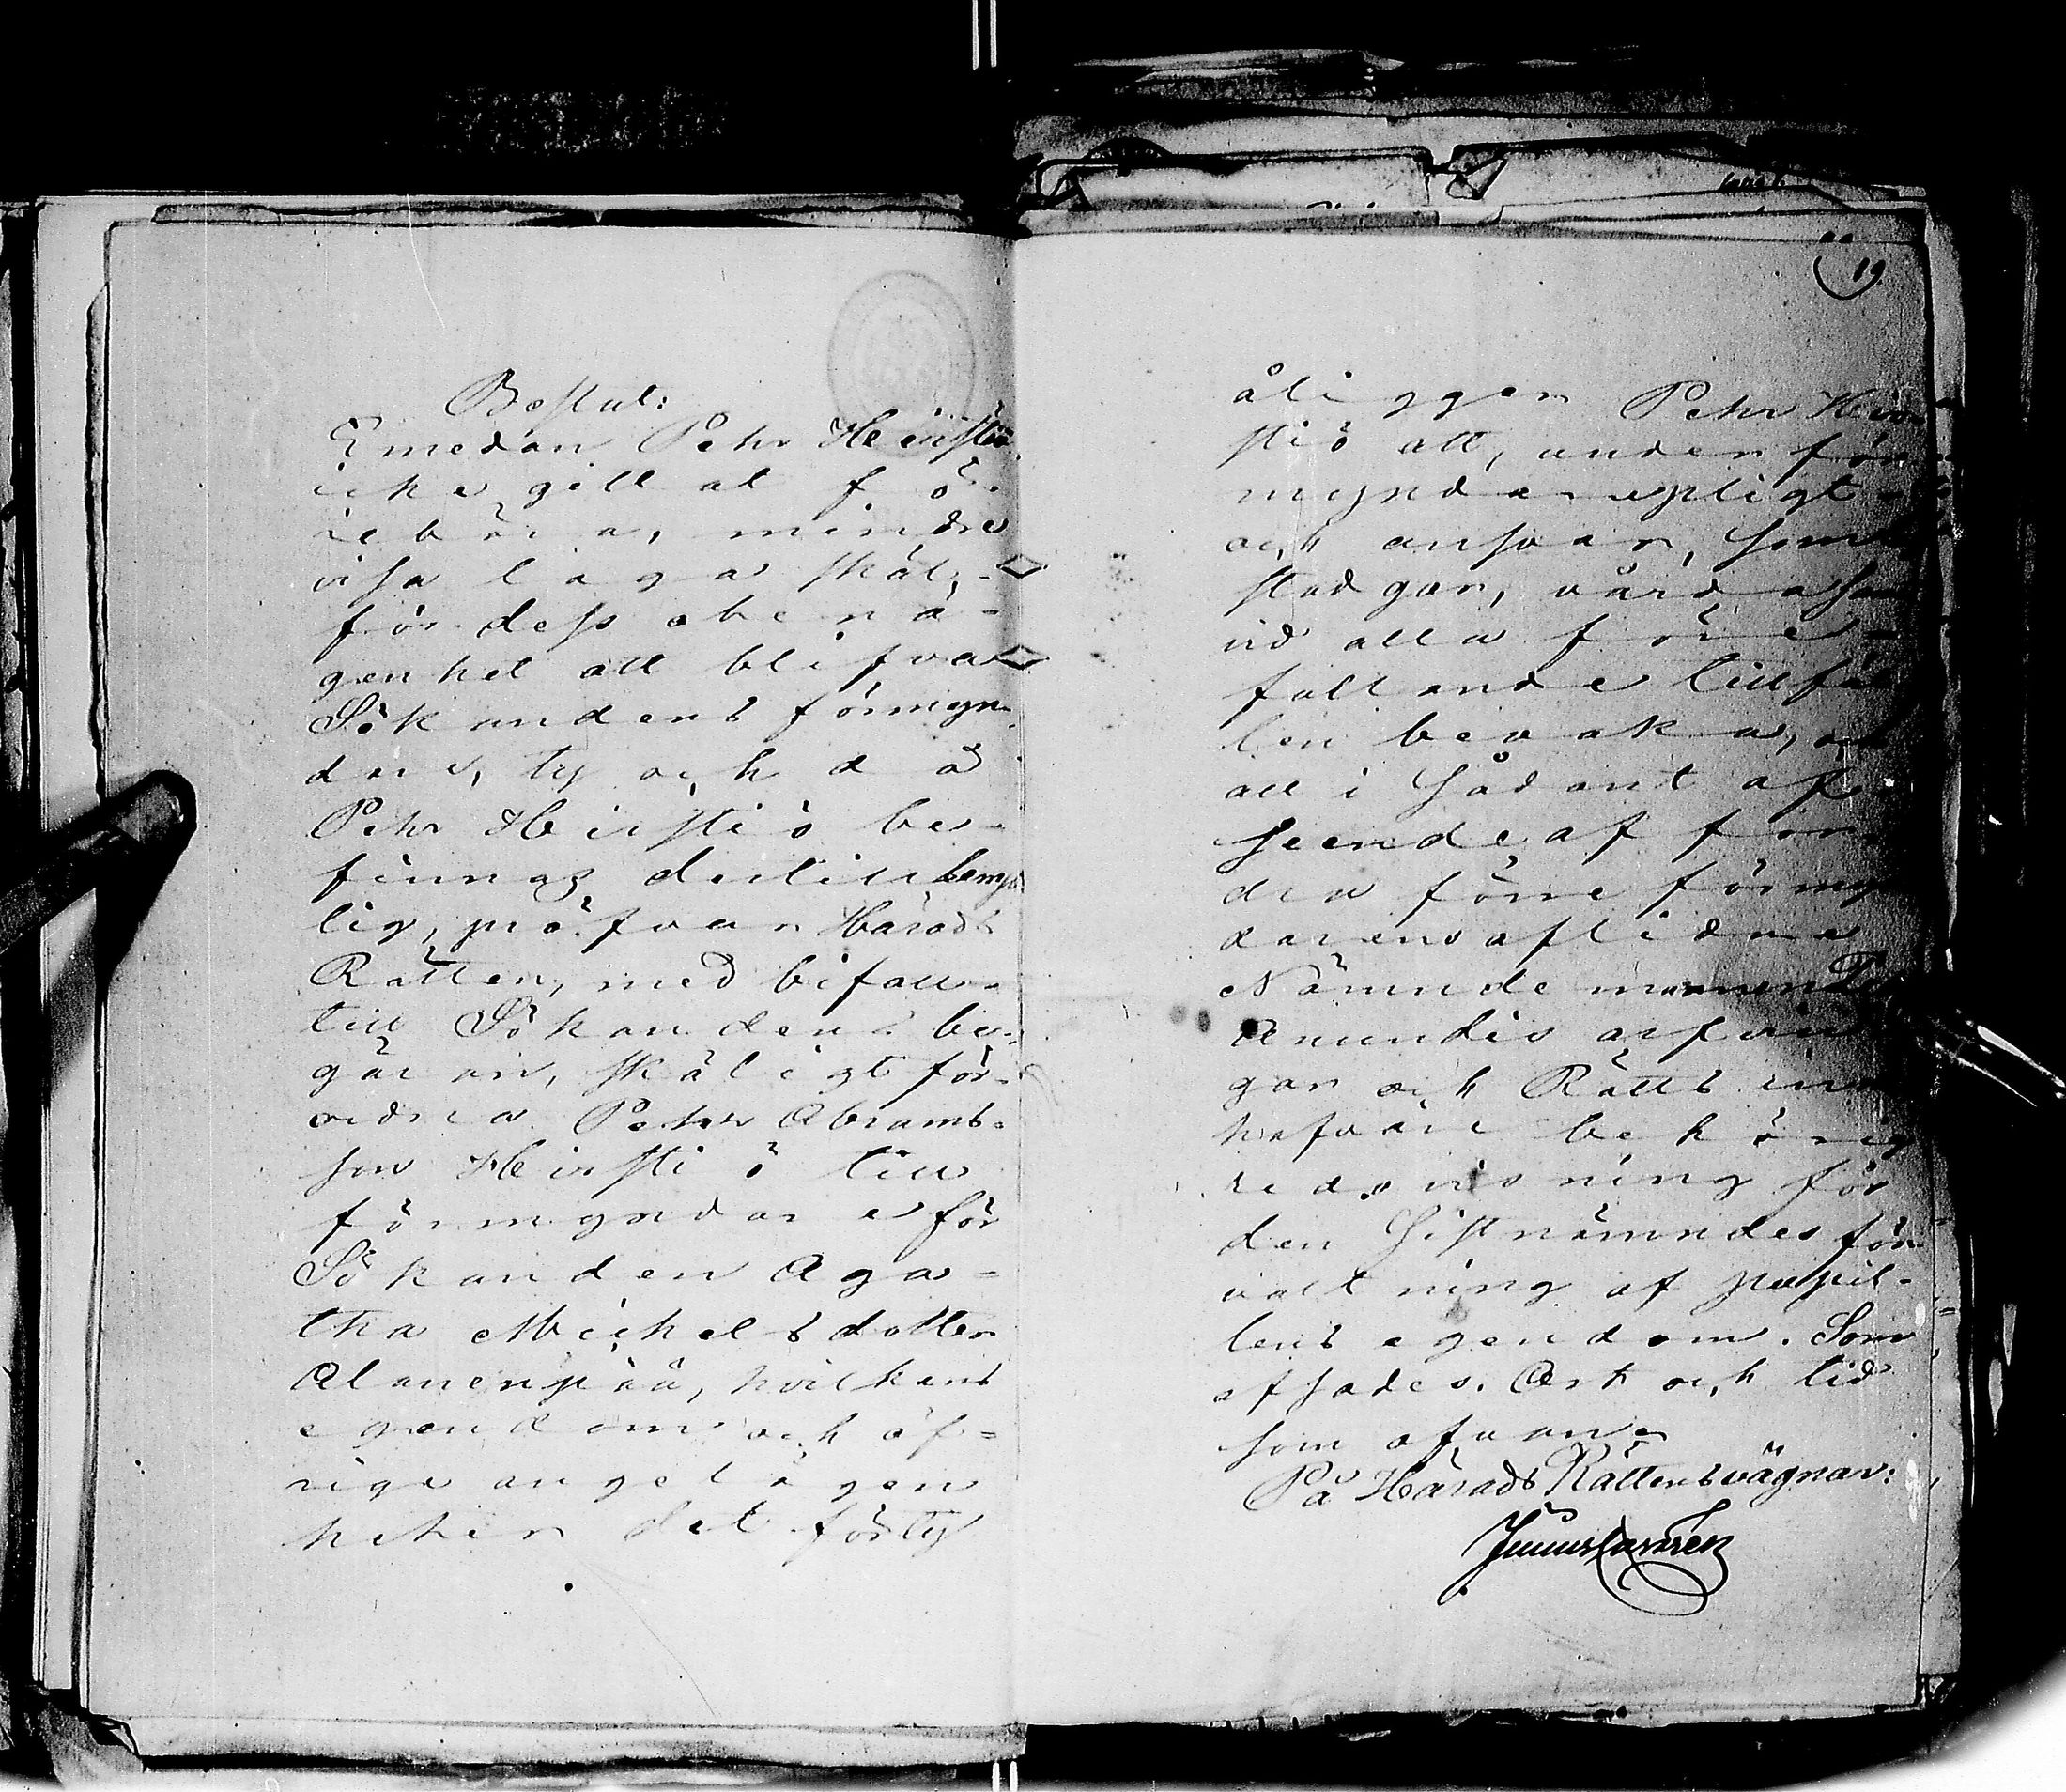 Beslut:
Emedan Pehr Heirstiö
icke gittat fö-
rebära, mindre
visa laga skäl,
för dess obenä-
genhet att blifva
Sökandens förmyn-
dare, ty och då
Pehr Heirstiö be-
finnas dertill lämp-
lig, pröfvar Härads
Rätten, med bifall
till Sökandens be-
gäran, skäligt för-
ordna Pehr Abrams-
son Heirstiö till
förmyndare för
Sökanden Aga-
tha Michelsdotter
Alanenpää, hvilkens
egendom och öf-
riga angelägen
heter det förty
19.
åligger Pehr Heir-
stiö att, under för
myndarepligt
och ansvar, som
stadgar, vårda samt
vid alla före-
fallande tillfäl
len bevaka, och
att i sådant af-
seende af
förre förmyn
darens aflidne
Nämndemannen
arfvin
gar och Rätts inne
hafvare behörig
redovisning för
den Sistnämndes för
valtning af pupil-
lens egendom. Som
afsades. Ort och tid
som ofvan.
På Härads Rättens vägnar: